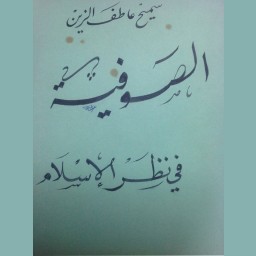 سميح عاطف الزين
الصوفية
في نظر الإسلام